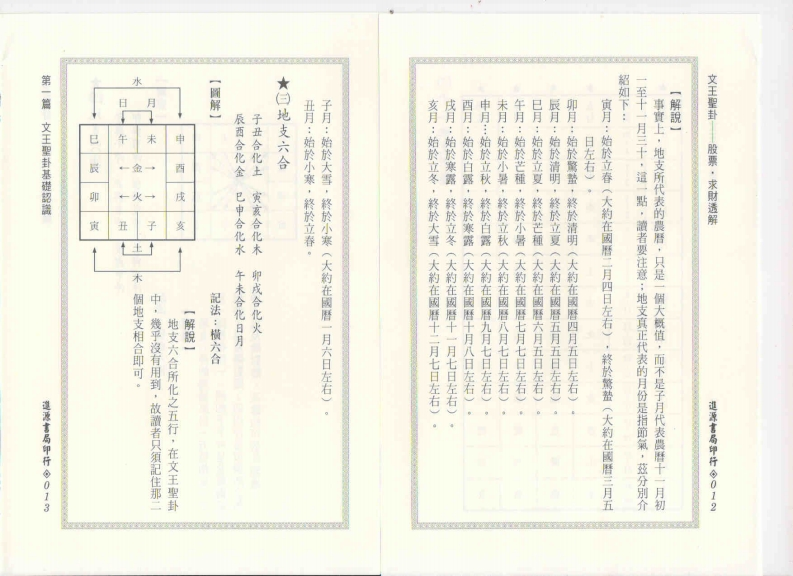 文王聖卦——股票，求財透解
【解說】
事實上，地支所代表的農曆，只是一個大概值，而不是子月代表農曆十一月初
一至十一月三十，這一點，讀者要注意；地支真正代表的月份是指節氣，茲分別介
紹如下：
寅月：始於立春（大約在國曆二月四日左右），終於驚蟄（大約在國曆三月五
日左右）。
卯月：始於驚蟄，終於清明（大約在國曆四月五日左右）。
辰月：始於清明，終於立夏（大約在國曆五月五日左右）。
巳月：始於立夏，終於芒種（大約在國曆六月五日左右）。
午月：始於芒種，終於小暑（大約在國曆七月七日左右）。
未月：始於小暑，終於立秋（大約在國曆八月七日左右）。
申月：始於立秋，終於白露（大約在國曆九月七日左右）。
酉月：始於白露，終於寒露（大約在國曆十月八日左右）。
戌月：始於寒露，終於立冬（大約在國曆十一月七日左右）。
亥月：始於立冬，終於大雪（大約在國曆十二月七日左右）。
進源書局印行◈012
子月：始於大雪，終於小寒（大約在國曆一月六日左右）。
丑月：始於小寒，終於立春。
★㈢地支六合
子丑合化土　寅亥合化木　卯戌合化火
辰酉合化金　巳申合化水　午未合化日月
【圖解】
記法：橫六合
水
日 月
巳 午 未 申
辰 ←金→ 酉
卯 ←火→ 戌
寅 丑 子 亥
土
木
【解說】
地支六合所化之五行，在文王聖卦
中，幾乎沒有用到，故讀者只須記住那二
個地支相合即可。
第一篇　文王聖卦基礎認識
進源書局印行◈013